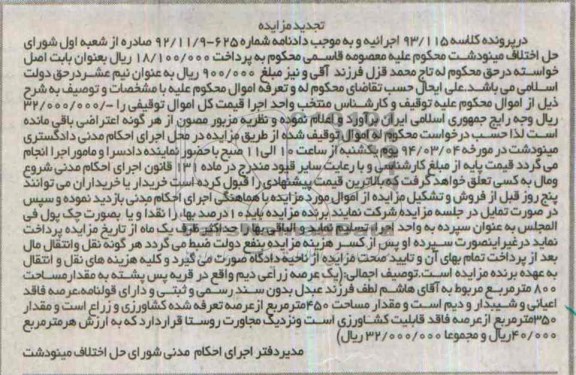 تجدید مزایده
در پرونده کلاسه ۹۳/۱۱۵ اجرائیه و به موجب دادنامه شماره ۶۲۵-۹۲/۱۱/۹ صادره از شعبه اول شورای
حل اختلاف مینودشت محکوم علیه معصومه قاسمی محکوم به پرداخت ۱۸/۱۰۰/۰۰۰ ریال بعنوان بابت اصل
خواسته در حق محکوم له تاج محمد قزل فرزند آقی و نیز مبلغ ۹۰۰/۰۰۰ ریال به عنوان نیم عشر در حق دولت
اسلامی می باشد.علی ایحال حسب تقاضای محکوم له و تعرفه اموال محکوم علیه با مشخصات و توصیف به شرح
ذیل از اموال محکوم علیه توقیف و کارشناس منتخب واحد اجرا قیمت کل اموال توقیفی را -/۳۲/۰۰۰/۰۰۰
ریال وجه رایج جمهوری اسلامی ایران برآورد و اعلام نموده و نظریه مزبور مصون از هر گونه اعتراضی باقی مانده
است لذا حسب درخواست محکوم له اموال توقیف شده از طریق مزایده در محل اجرای احکام مدنی دادگستری
مینودشت در مورخه ۹۴/۰۳/۰۴ روز یکشنبه از ساعت ۱۰ الی ۱۱ صبح با حضور نماینده دادسرا و مامور اجرا انجام
می گردد قیمت پایه از مبلغ کارشناسی و با رعایت سایر قیود مندرج در ماده ۱۳۱ قانون اجرای احکام مدنی شروع
ومال به کسی تعلق خواهد گرفت که بالاترین قیمت پیشنهادی را قبول کرده است خریدار یا خریداران می توانند
پنج روز قبل از فروش و تشکیل مزایده از اموال مورد مزایده با هماهنگی اجرای احکام مدنی بازدید نموده و سپس
در صورت تمایل در جلسه مزایده شرکت نمایند برنده مزایده باید ۱۰درصد بها را نقدا و یا بصورت چک پول فی
المجلس به عنوان سپرده به واحد اجرا تسلیم نماید و الباقی بها را حداکثر ظرف یک ماه از تاریخ مزایده پرداخت
نماید در غیر اینصورت سپرده او پس از کسر هزینه مزایده بنفع دولت ضبط می گردد هر گونه نقل و انتقال مال
بعد از پرداخت تمام بهای آن و تایید صحت مزایده از ناحیه دادگاه صورت می گیرد و کلیه هزینه های نقل و انتقال
به عهده برنده مزایده است.توصیف اجمالی:(یک عرصه زراعی دیم واقع در قریه پس پشته به مقدار مساحت
۸۰۰ مترمربع مربوط به آقای هاشم لطف فرزند عبدل بدون سند رسمی و ثبتی و دارای قولنامه عرصه فاقد
اعیانی و شیبدار و دیم است و مقدار مساحت ۴۵۰مترمربع از عرصه تعرفه شده کشاورزی و زراع است و مقدار
۳۵۰مترمربع از عرصه فاقد قابلیت کشاورزی است ونزدیک مجاورت روستا قرار دارد که به ارزش هرمترمربع
۴۰/۰۰۰ریال و مجموعا ۳۲/۰۰۰/۰۰۰ ریال)
مدیر دفتر اجرای احکام مدنی شورای حل اختلاف مینودشت